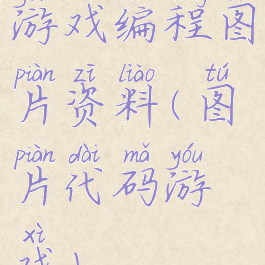 游戏编程图
piàn zī liào tú
片资料(图
piàn dài mǎ yóu
片代码游
xì
戏)